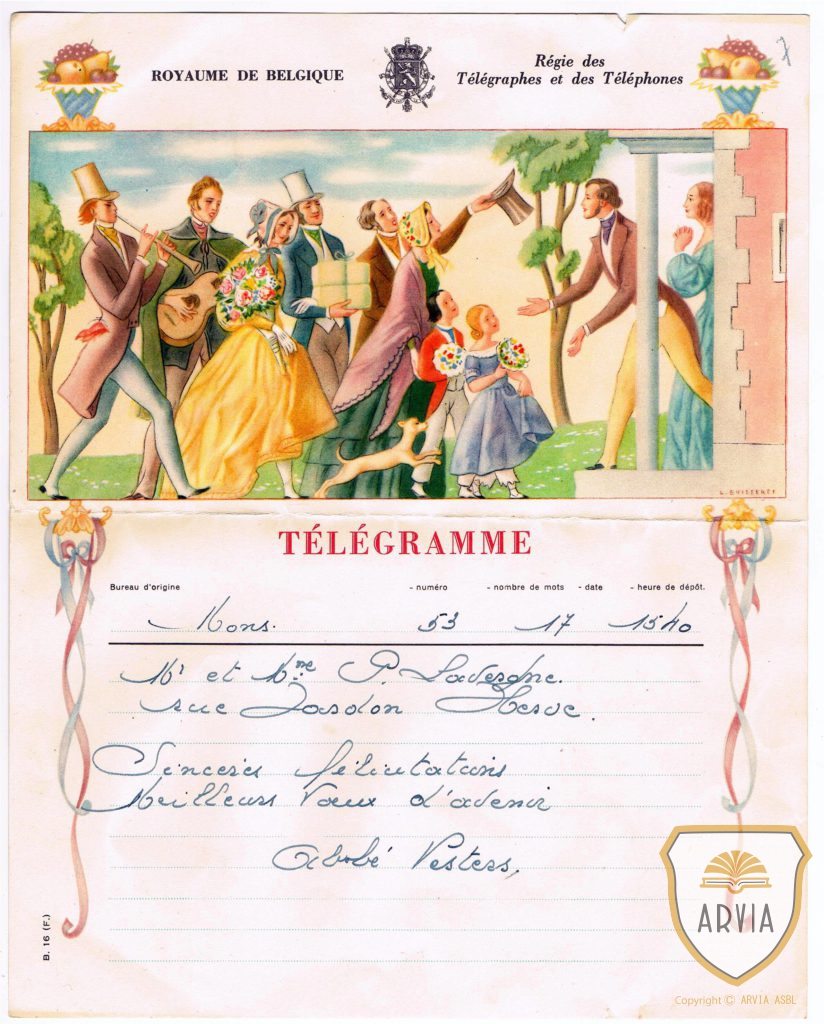 ROYAUME DE BELGIQUE
Régie des
Télégraphes et des Téléphones
7
L. BUISSERET
TÉLÉGRAMME
Bureau d'origine - numéro - nombre de mots - date - heure de dépôt.
Mons. 53 17 15h0
Mr et Mme P. Lavergne.
rue Jardon Herve.
Sincères félicitations
Meilleurs Vœux d'avenir
Abbé Vesters,
B. 16 (F.)
ARVIA
Copyright © ARVIA ASBL